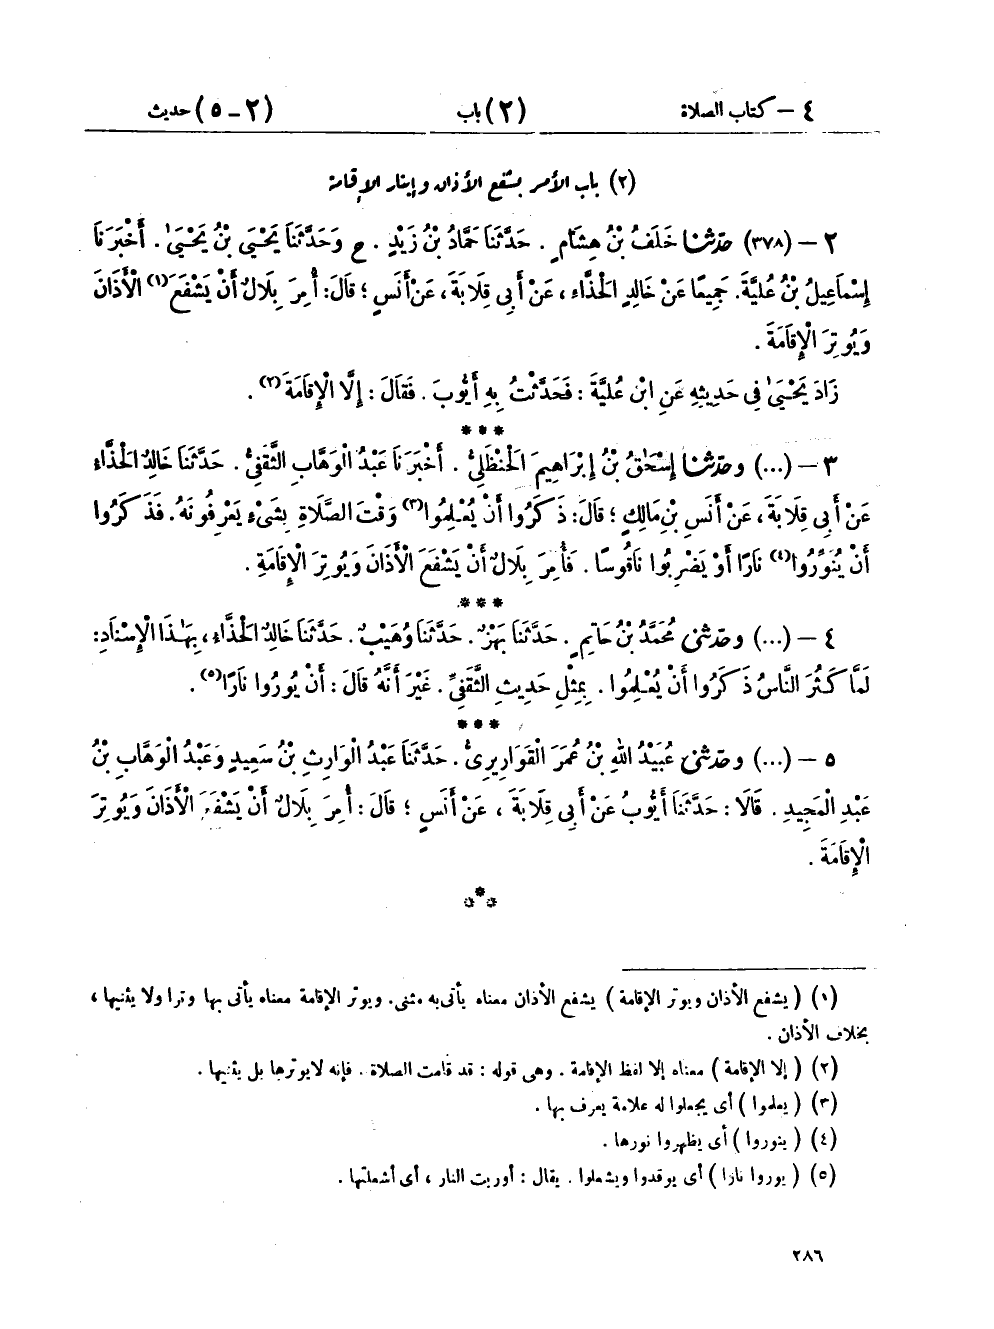 ٤ – كتاب الصلاة (٢) باب (٢ – ٥) حديث
(٢) باب الأمر بشفع الأذان وإيتار الإقامة
٢ – (٣٧٨) حدّثنا خَلَفُ بْنُ هِشَامٍ . حَدَّثَنَا حَمَّادُ بْنُ زَيْدٍ . ح وَحَدَّثَنَا يَحْيَى بْنُ يَحْيَىٰ . أَخْبَرَنَا
إِسْمَاعِيلُ بْنُ عُلَيَّةَ. جَمِيعًا عَنْ خَالِدٍ الْحَذَّاءِ ، عَنْ أَبِي قِلَابَةَ ، عَنْ أَنَسٍ ؛ قَالَ: أُمِرَ بِلَالٌ أَنْ يَشْفَعَ(١) الْأَذَانَ
وَيُوتِرَ الْإِقَامَةَ .
زَادَ يَحْيَىٰ فِي حَدِيثِهِ عَنِ ابْنِ عُلَيَّةَ : فَحَدَّثْتُ بِهِ أَيُّوبَ . فَقَالَ : إِلَّا الْإِقَامَةَ(٢) .
***
٣ – (...) وحدّثنا إِسْحَٰقُ بْنُ إِبْرَاهِيمَ الْحَنْظَلِيُّ . أَخْبَرَنَا عَبْدُ الْوَهَّابِ الثَّقَفِيُّ . حَدَّثَنَا خَالِدٌ الْحَذَّاءُ
عَنْ أَبِي قِلَابَةَ ، عَنْ أَنَسِ بْنِ مَالِكٍ ؛ قَالَ: ذَكَرُوا أَنْ يُعْلِمُوا(٣) وَقْتَ الصَّلَاةِ بِشَيْءٍ يَعْرِفُونَهُ. فَذَكَرُوا
أَنْ يُنَوِّرُوا(٤) نَارًا أَوْ يَضْرِبُوا نَاقُوسًا . فَأُمِرَ بِلَالٌ أَنْ يَشْفَعَ الْأَذَانَ وَيُوتِرَ الْإِقَامَةِ .
***
٤ – (...) وحدّثني مُحَمَّدُ بْنُ حَاتِمٍ . حَدَّثَنَا بَهْزٌ . حَدَّثَنَا وُهَيْبٌ . حَدَّثَنَا خَالِدٌ الْحَذَّاءُ ، بِهَٰذَا الْإِسْنَادِ:
لَمَّا كَثُرَ النَّاسُ ذَكَرُوا أَنْ يُعْلِمُوا . بِمِثْلِ حَدِيثِ الثَّقَفِيِّ . غَيْرَ أَنَّهُ قَالَ : أَنْ يُورُوا نَارًا(٥) .
***
٥ – (...) وحدّثني عُبَيْدُ اللهِ بْنُ عُمَرَ الْقَوَارِيرِيُّ . حَدَّثَنَا عَبْدُ الْوَارِثِ بْنُ سَعِيدٍ وَعَبْدُ الْوَهَّابِ بْنُ
عَبْدِ الْمَجِيدِ . قَالَا : حَدَّثَنَا أَيُّوبُ عَنْ أَبِي قِلَابَةَ ، عَنْ أَنَسٍ ؛ قَالَ : أُمِرَ بِلَالٌ أَنْ يَشْفَعَ الْأَذَانَ وَيُوتِرَ
الْإِقَامَةَ .
***
(١) ( يشفع الأذان ويوتر الإقامة ) يشفع الأذان معناه يأتى به مثنى. ويوتر الإقامة معناه يأتى بها وترا ولا يثنيها ،
بخلاف الأذان .
(٢) ( إلا الإقامة ) معناه إلا لفظ الإقامة . وهى قوله : قد قامت الصلاة . فإنه لا يوترها بل يثنيها .
(٣) ( يعلموا ) أى يجعلوا له علامة يعرف بها .
(٤) ( ينوروا ) أى يظهروا نورها .
(٥) ( يوروا نارا ) أى يوقدوا ويشعلوا . يقال : أوريت النار ، أى أشعلتها .
٢٨٦